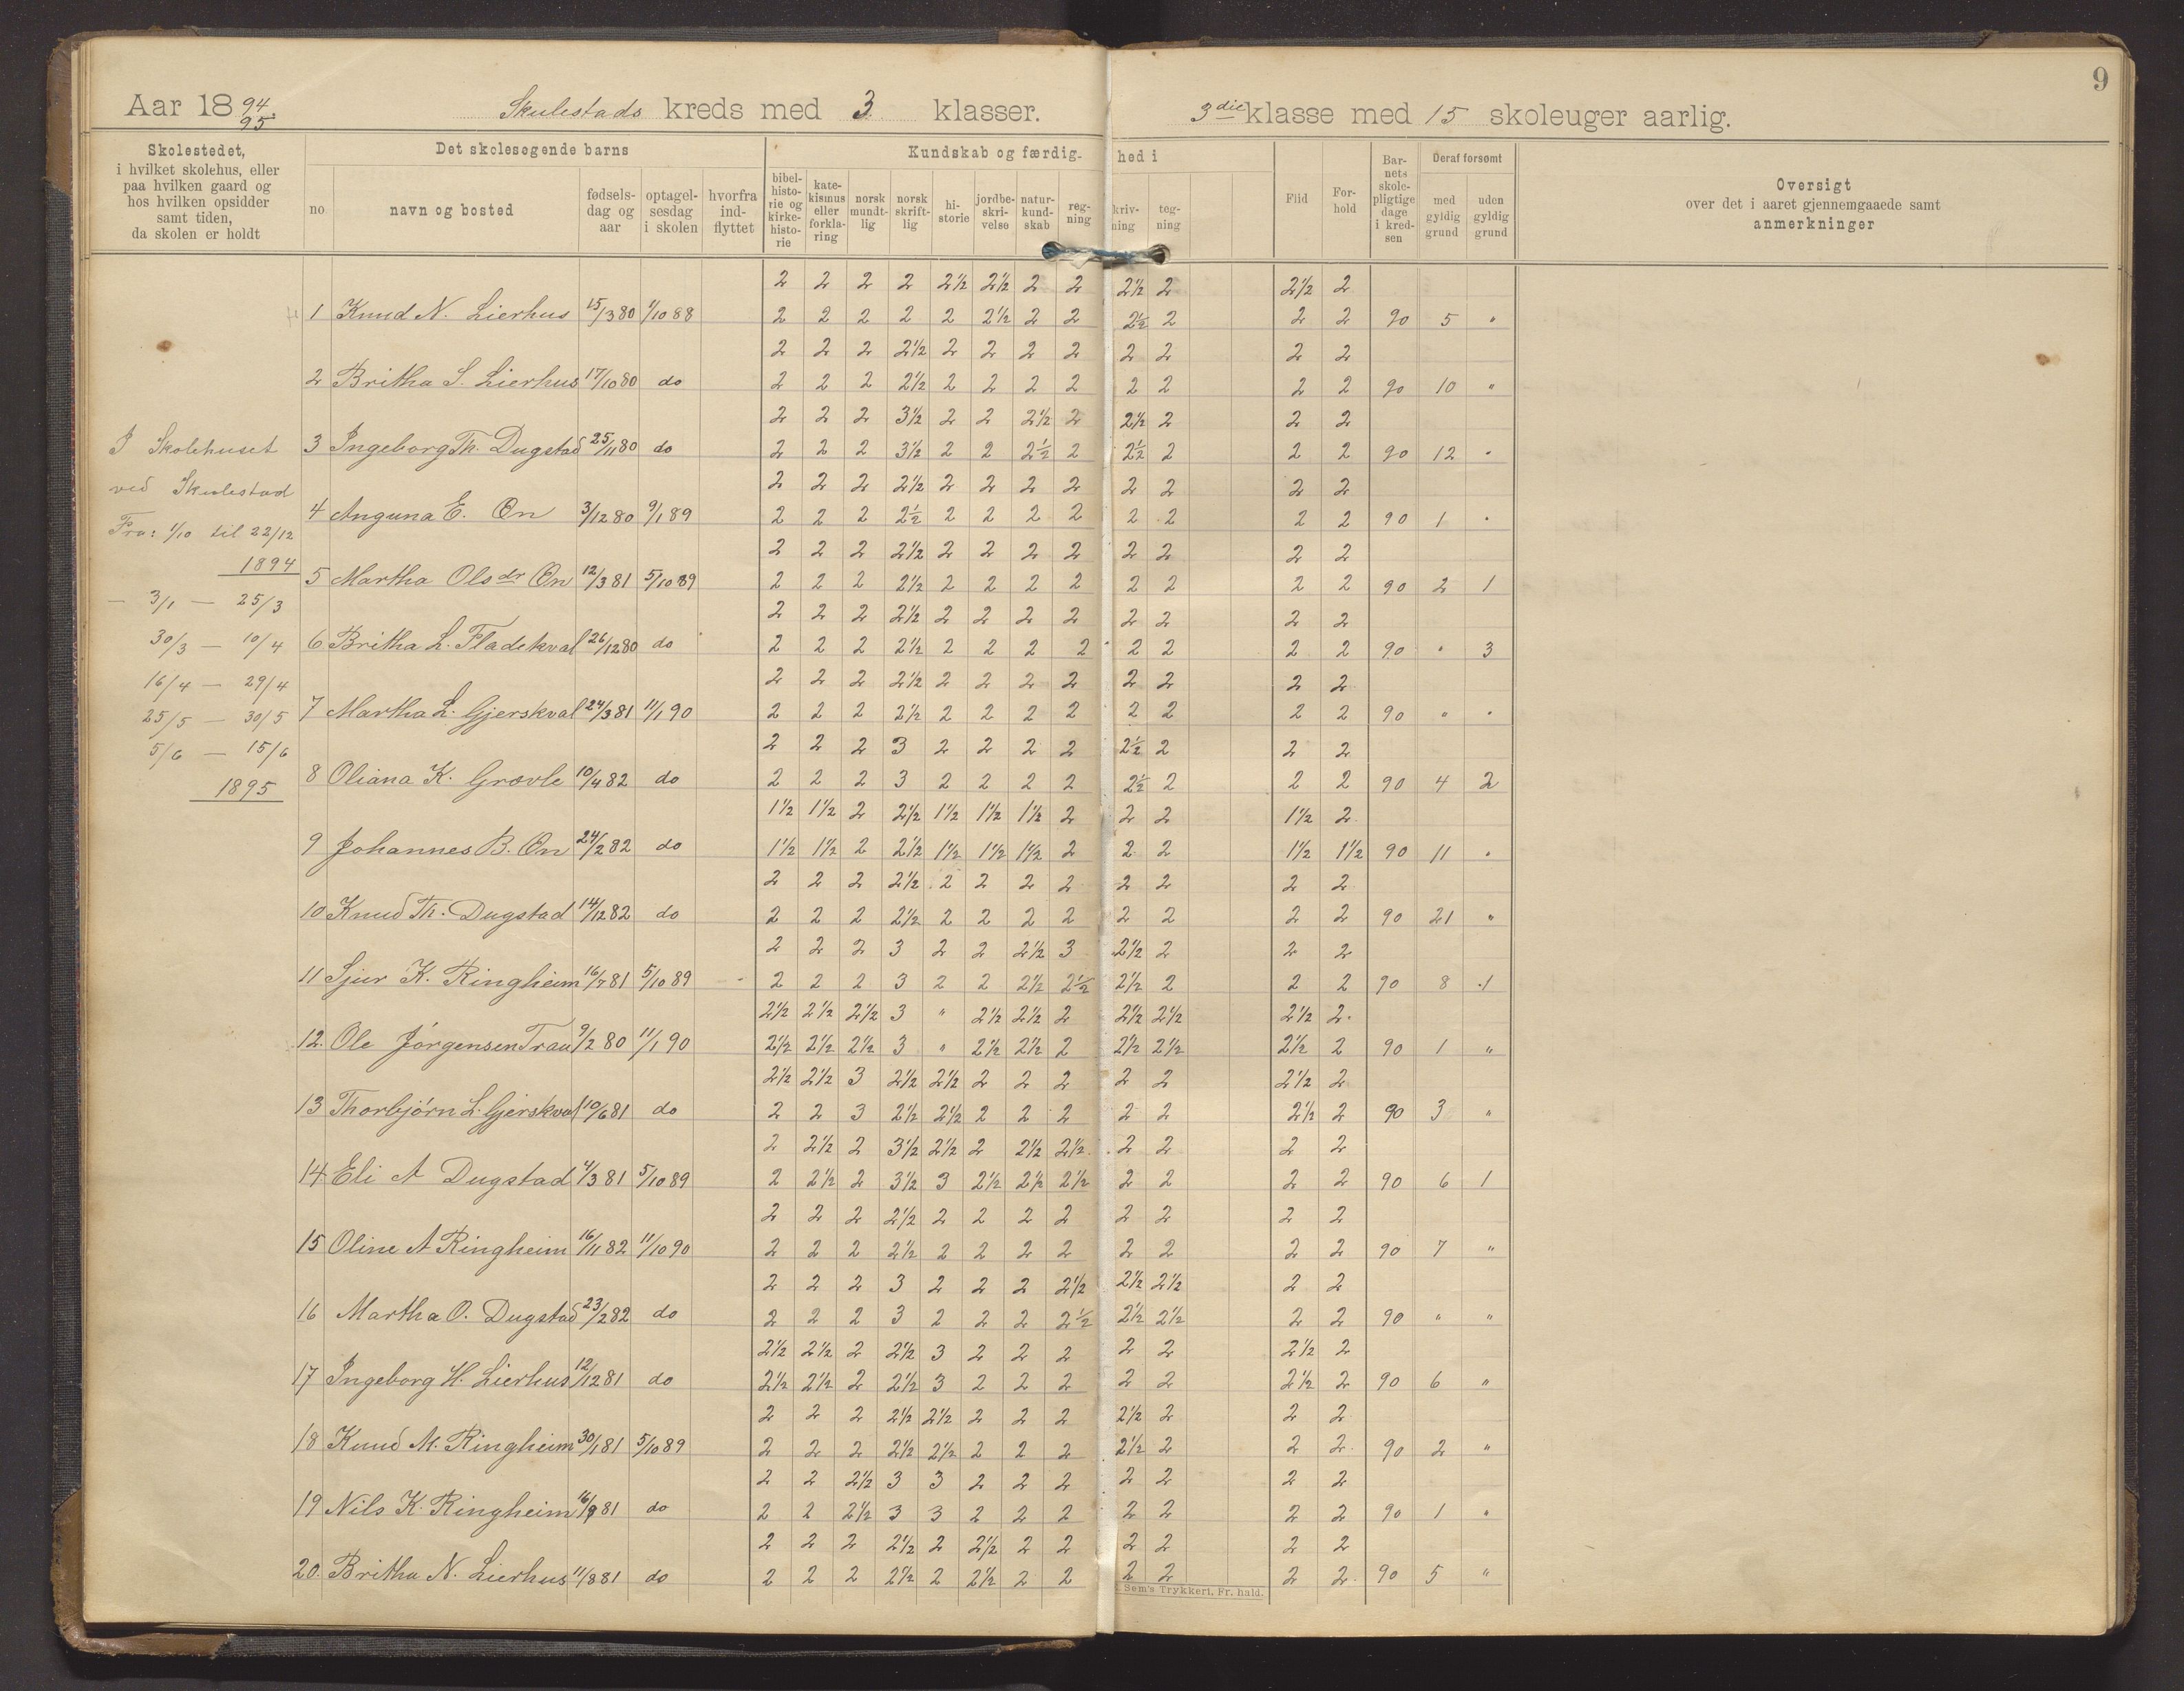 9
Aar 18 94/95. Skulestads kreds med 3 klasser. 3die klasse med 15 skoleuger aarlig.
Skolestedet,
i hvilket skolehus, eller
paa hvilken gaard og
hos hvilken opsidder
samt tiden,
da skolen er holdt
Det skolesøgende barns
no
navn og bosted
fødsels-
dag og
aar
optagel-
sesdag
i skolen
hvorfra
ind-
flyttet
Kundskab og færdig- hed i
bibel-
histo-
rie og
kirke-
histo-
rie
kate-
kismus
eller
forkla-
ring
norsk
mundt-
lig
norsk
skrift-
lig
hi-
storie
jordbe-
skri-
velse
natur-
kund-
skab
reg-
ning
kriv-
ning
teg-
ning
Flid
For-
hold
Bar-
nets
skole-
pligtige
dage
i kred-
sen
Deraf forsømt
med
gyldig
grund
uden
gyldig
grund
Oversigt
over det i aaret gjennemgaaede samt
anmerkninger
I Skolehuset
ved Skulestad
Fra: 1/10 til 22/12
1894
– 3/1 – 25/3
30/3 – 10/4
16/4 – 29/4
25/5 – 30/5
5/6 – 15/6
1895
2 2 2 2 2½ 2½ 2 2 2½ 2 2½ 2
1 Knud N. Lierhus 15/3 80 1/10 88 2 2 2 2 2 2½ 2 2 2½ 2 2 2 90 5 "
2 2 2 2½ 2 2 2 2 2 2 2 2
2 Britha S. Lierhus 17/10 80 do 2 2 2 2½ 2 2 2 2 2 2 2 2 90 10 "
2 2 2 3½ 2 2 2½ 2 2½ 2 2 2
3 Ingeborg Th. Dugstad 25/11 80 do 2 2 2 3½ 2 2 2½ 2 2½ 2 2 2 90 12 "
2 2 2 2½ 2 2 2 2 2 2 2 2
4 Anguna E. Øn 3/12 80 9/1 89 2 2 2 2½ 2 2 2 2 2 2 2 2 90 1 "
2 2 2 2½ 2 2 2 2 2 2 2 2
5 Martha Olsdr Øn 12/3 81 5/10 89 2 2 2 2½ 2 2 2 2 2 2 2 2 90 2 1
2 2 2 2½ 2 2 2 2 2 2 2 2
6 Britha L. Fladekval 26/12 80 do 2 2 2 2½ 2 2 2 2 2 2 2 2 90 " 3
2 2 2 2½ 2 2 2 2 2 2 2 2
7 Martha L. Gjerskval 24/3 81 11/1 90 2 2 2 2½ 2 2 2 2 2 2 2 2 90 " "
2 2 2 3 2 2 2 2 2½ 2 2 2
8 Oliana K. Grovle 10/4 82 do 2 2 2 3 2 2 2 2 2½ 2 2 2 90 4 2
1½ 1½ 2 2½ 1½ 1½ 1½ 2 2 2 1½ 2
9 Johannes B. Øn 24/2 82 do 1½ 1½ 2 2½ 1½ 1½ 1½ 2 2 2 1½ 1½ 90 11 "
2 2 2 2½ 2 2 2 2 2 2 2 2
10 Knud Th. Dugstad 14/12 82 do 2 2 2 2½ 2 2 2 2 2 2 2 2 90 21 "
2 2 2 3 2 2 2½ 3 2½ 2 2 2
11 Sjur K. Ringheim 16/7 81 5/10 89 2 2 2 3 2 2 2½ 2½ 2½ 2 2 2 90 8 1
2½ 2½ 2½ 3 " 2½ 2½ 2 2½ 2½ 2½ 2
12. Ole Jørgensen Trau 9/2 80 11/1 90 2½ 2½ 2½ 3 " 2½ 2½ 2 2½ 2½ 2½ 2 90 1 "
2½ 2½ 3 2½ 2½ 2 2 2 2 2 2½ 2
13 Thorbjörn L. Gjerskval 10/6 81 do 2 2 3 2½ 2½ 2 2 2 2 2 2½ 2 90 3 "
2 2½ 2 3½ 2½ 2 2½ 2½ 2 2 2 2
14 Eli A Dugstad 4/3 81 5/10 89 2 2½ 2 3½ 3 2½ 2½ 2½ 2 2 2 2 90 6 1
2 2 2 2½ 2 2 2 2 2 2 2 2
15 Oline A Ringheim 16/11 82 11/10 90 2 2 2 2½ 2 2 2 2 2 2 2 2 90 7 "
2 2 2 3 2 2 2 2½ 2½ 2½ 2 2
16 Martha O. Dugstad 23/2 82 do 2 2 2 3 2 2 2 2½ 2½ 2½ 2 2 90 " "
2½ 2½ 2 2½ 3 2 2 2 2 2 2½ 2
17 Ingeborg H. Lierhus 12/12 81 do 2½ 2½ 2 2½ 3 2 2 2 2 2 2½ 2 90 6 "
2 2 2 2½ 2½ 2 2 2 2½ 2 2 2
18 Knud M. Ringheim 30/1 81 5/10 89 2 2 2 2½ 2½ 2 2 2 2½ 2 2 2 90 2 "
2 2 2½ 3 3 2 2 2 2 2 2 2
19 Nils K. Ringheim 16/9 81 do 2 2 2½ 3 3 2 2 2 2 2 2 2 90 1 "
2 2 2 2½ 2 2½ 2 2 2 2 2 2
20. Britha N. Lierhus 11/8 81 do 2 2 2 2½ 2 2½ 2 2 2 2 2 2 90 5 "
Sem's Trykkeri, Fr. hald.